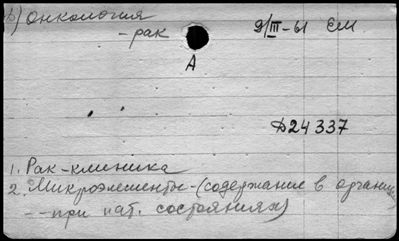 Д) Онкология 9/III-61 ЕМ
- рак
А
Д24337
1. Рак-клиника
2. Микроэлементы-(содержание в органи
- - при пат. состояниях)